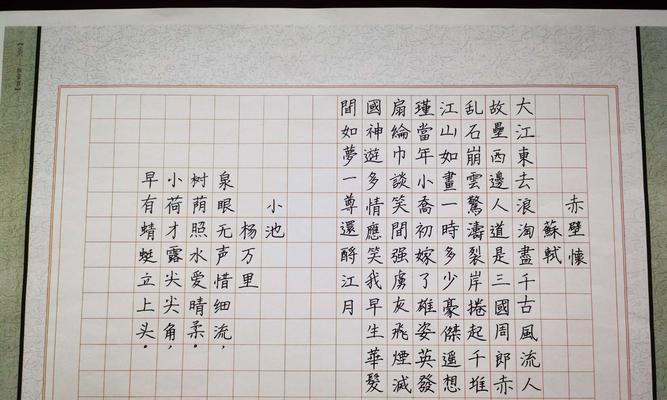 赤壁懷
蘇軾
大江東去浪淘盡千古風流人
故壘西邊人道是三國周郎赤
乱石崩雲驚濤裂岸捲起千堆
江山如畫一時多少豪傑遥想
瑾當年小喬初嫁了雄姿英發
扇綸巾談笑間强虜灰飛煙滅
國神遊多情應笑我早生華髮
間如夢一尊還酹江月
小池
杨万里
泉眼无声惜细流，
树荫照水爱晴柔。
小荷才露尖尖角，
早有蜻蜓立上头。